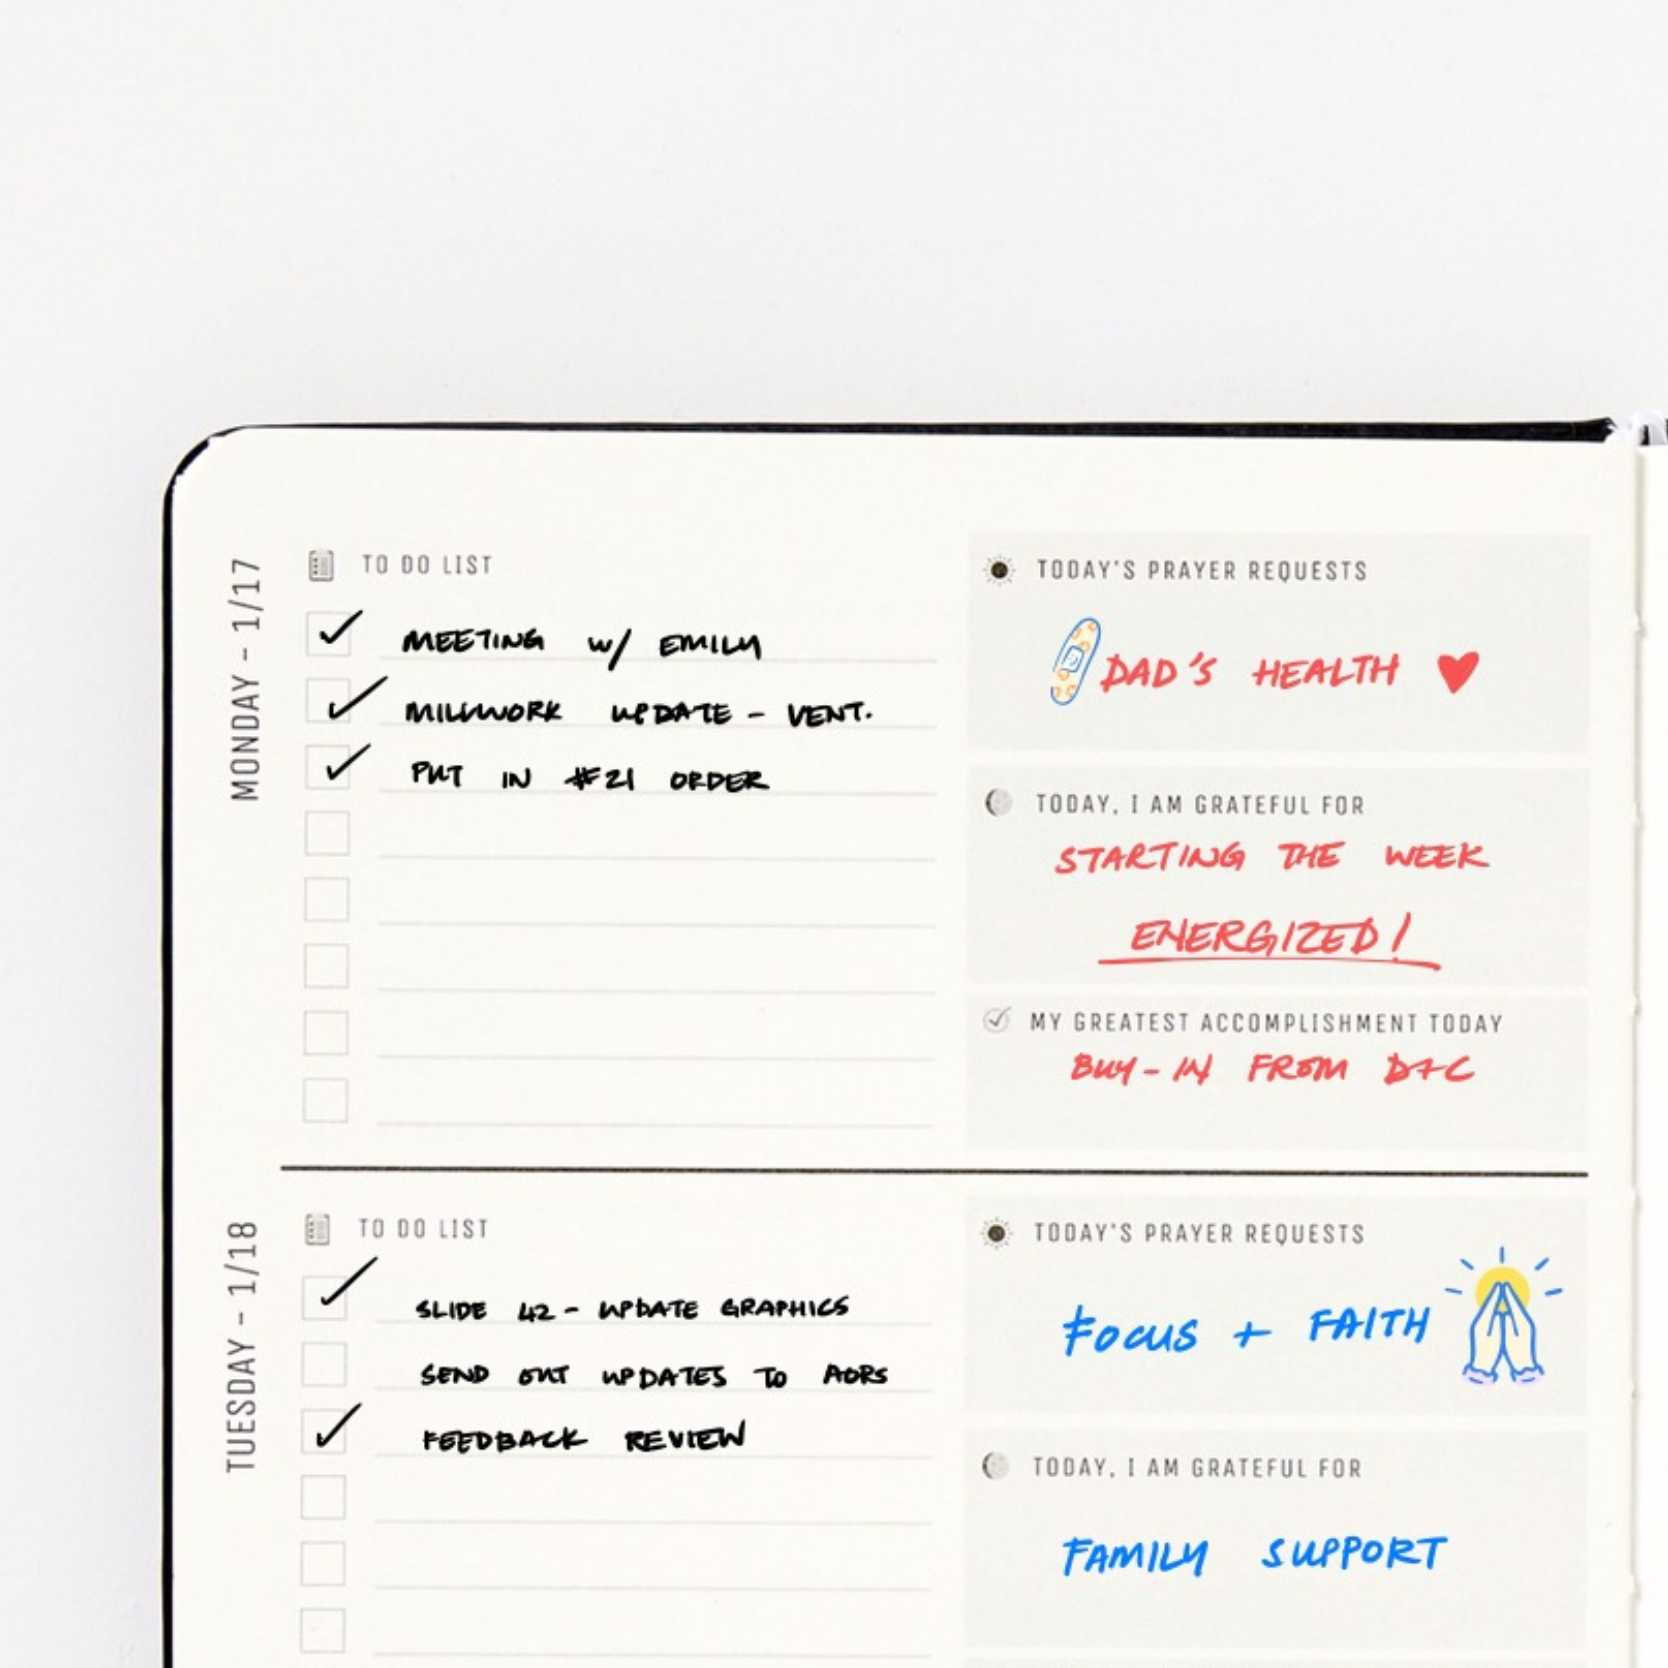 MONDAY - 1/17
TO DO LIST
MEETING w/ EMILY
MILLWORK UPDATE - VENT.
PUT IN #21 ORDER
TODAY'S PRAYER REQUESTS
DAD'S HEALTH
TODAY, I AM GRATEFUL FOR
STARTING THE WEEK
ENERGIZED!
MY GREATEST ACCOMPLISHMENT TODAY
BUY-IN FROM D+C
TUESDAY - 1/18
TO DO LIST
SLIDE 42 - UPDATE GRAPHICS
SEND OUT UPDATES TO AORS
FEEDBACK REVIEW
TODAY'S PRAYER REQUESTS
FOCUS + FAITH
TODAY, I AM GRATEFUL FOR
FAMILY SUPPORT